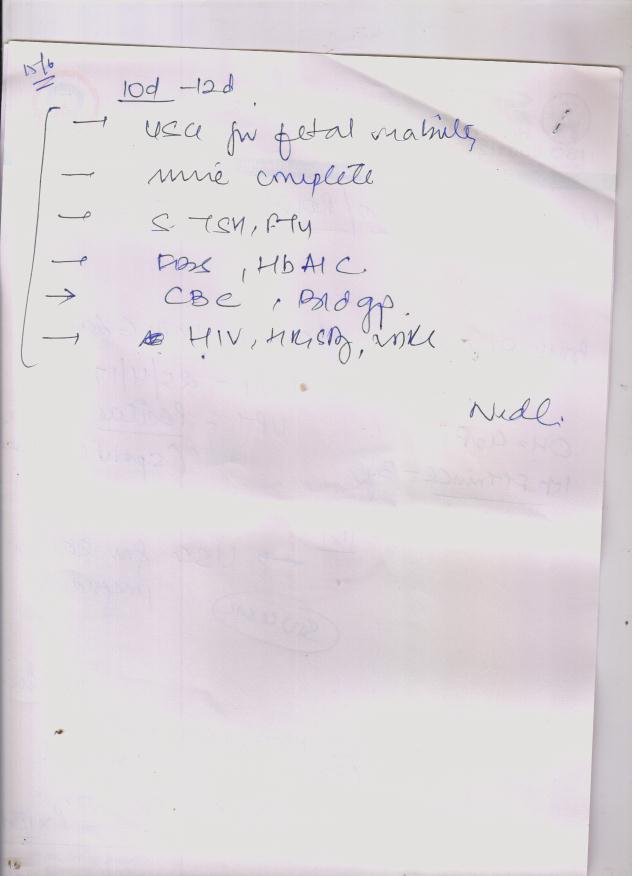 15/6
10d - 12d
→ USG for fetal viability
— urine complete
→ S. TSH, FT4
→ FBS, HbA1C
→ CBC, Bld gp.
→ HIV, HBsAg, VDRL